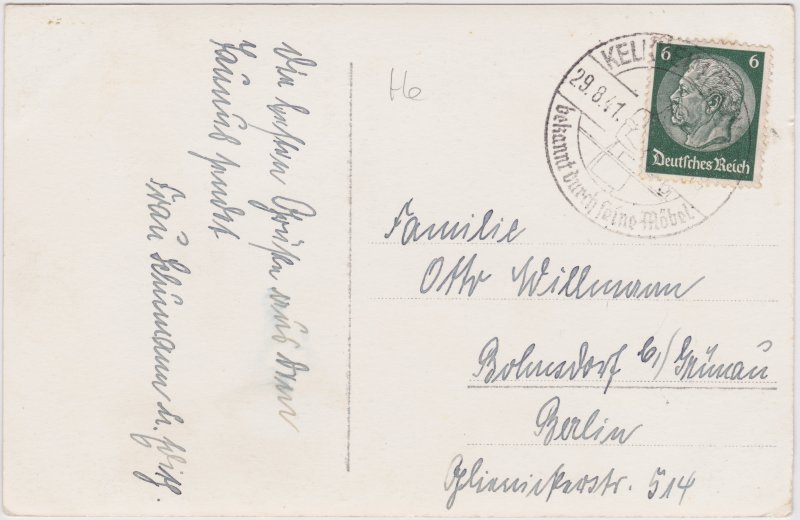 Die besten Grüße aus dem
Taunus sendet
Frau Schumann u.
He
KELK
29.8.41.
bekannt durch seine Möbel
6 6
Deutsches Reich
Familie
Otto Willmann
Bohnsdorf b/ Grünau
Berlin
Glienickerstr. 514